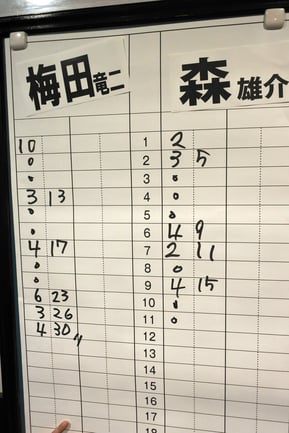 梅田竜二 森雄介
10 1 2
0 2 3 5
0 3 0
3 13 4 0
0 5 0
0 6 4 9
4 17 7 2 11
0 8 0
0 9 4 15
6 23 10 0
3 26 11 0
4 30 〃 12
13
14
15
16
17
18